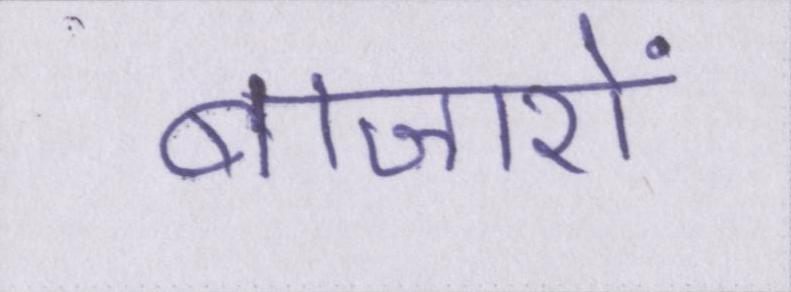 बाजारों